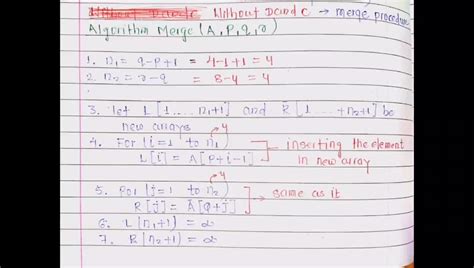 Without DandC → merge procedure
Algorithm Merge (A, P, q, r)
1. n1 = q-p+1 = 4-1+1 = 4
2. n2 = r-q = 8-4 = 4
3. let L[1....n1+1] and R[1...+n2+1] be
new arrays
4. For (i=1 to n1) 4
L[i] = A[P+i-1] → inserting the element in new array
5. For (j=1 to n2) 4
R[j] = A[Q+j] → same as it
6. L(n1+1) = ∞
7. R(n2+1) = ∞